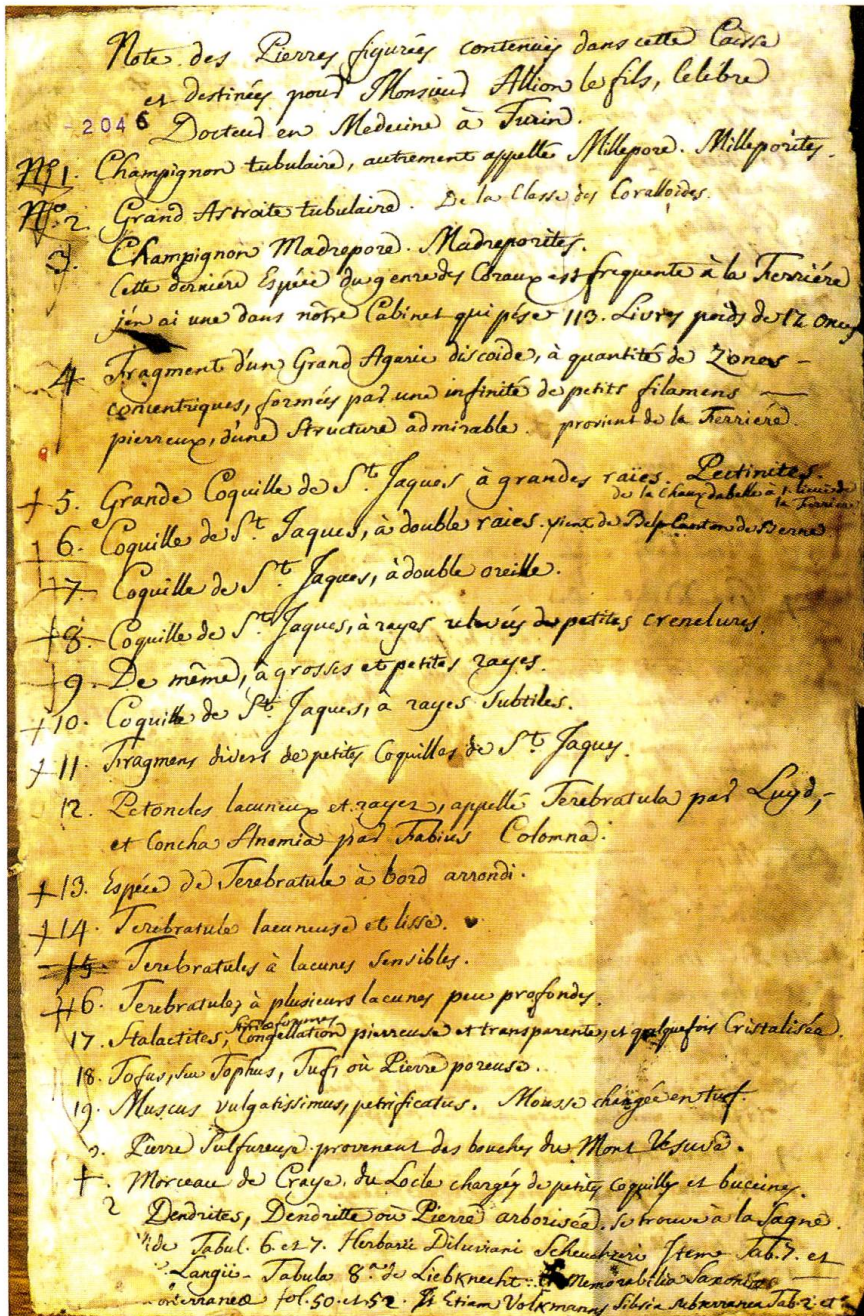 Note des Pierres figurées contenües dans cette Caisse
et destinées pour Monsieur Allion le fils, celebre
2046
Docteur en Medecine à Turin.
No 1. Champignon tubulaire, autrement appellé Millepore. Milleporites.
No. 2. Grand Astroite tubulaire. De la Classe des Coralloides.
3. Champignon Madrepore. Madreporites.
Cette derniére Espéce du genre des Coraux est frequente à la Ferriére
j'en ai une dans nôtre Cabinet qui pése 113. Livres poids de 12 onces
4 Fragment d'un Grand Agaric discoide, à quantité de Zones -
concentriques, formées par une infinité de petits filamens —
pierreux, d'une Structure admirable. provient de la Ferriére.
+ 5. Grande Coquille de St. Jaques à grandes raïes. Pectinites.
de la Chaux d'abelle à 1. lieuë de
la Ferriere
+ 6. Coquille de St. Jaques, à double raies. vient de Belp Canton de Berne
+ 7. Coquille de St. Jaques, à double oreille.
+ 8. Coquille de St. Jaques, à rayes relevées de petites crenelures.
+ 9. De même, à grosses et petites rayes.
+ 10. Coquille de St. Jaques, à rayes subtiles.
+ 11. Fragmens divers de petites Coquilles de St. Jaques.
12. Petoncles lacuneux et rayez, appellé Terebratula par Luyd,
et Concha Anomia par Fabius Colomna.
+ 13. Espéce de Terebratule à bord arrondi.
+ 14. Terebratule lacuneuse et lisse.
15. Terebratules à lacunes sensibles.
+ 16. Terebratules à plusieurs lacunes peu profondes.
17. Stalactites, Congellation pierreuse et transparente, et quelquefois Cristalisée.
18. Tofus, seu Tophus, Tuf, où Pierre poreuse.
19. Muscus vulgatissimus, petrificatus. Mousse chargée en tuf.
Pierre Sulfureuse provenent des bouches du Mont Vesuve.
+. Morceau de Craye, du Locle chargéz de petits coquilles et buccines.
2 Dendrites, Dendritte où Pierre arborisée. se trouve à la Sagne.
Vide Tabul. 6. et 7. Herbarii Diluviani Scheuchzeri Item Tab. 7. et
Langii - Tabula 8.a de Liebknecht. Memorabilia Saxoniae
fol. 50. et 52. Et Etiam Volkmanns Silesia subterranea Tab. 2. et